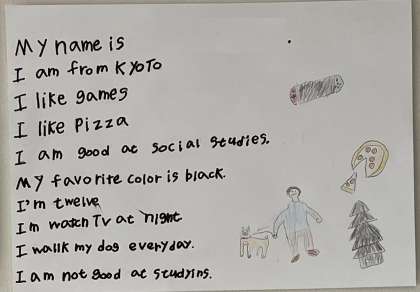 My name is
I am from KYOTO
I like games
I like Pizza
I am good at social studies.
My favorite color is black.
I'm twelve
Im watch Tv at night
I wallk my dog everyday.
I am not good at studying.